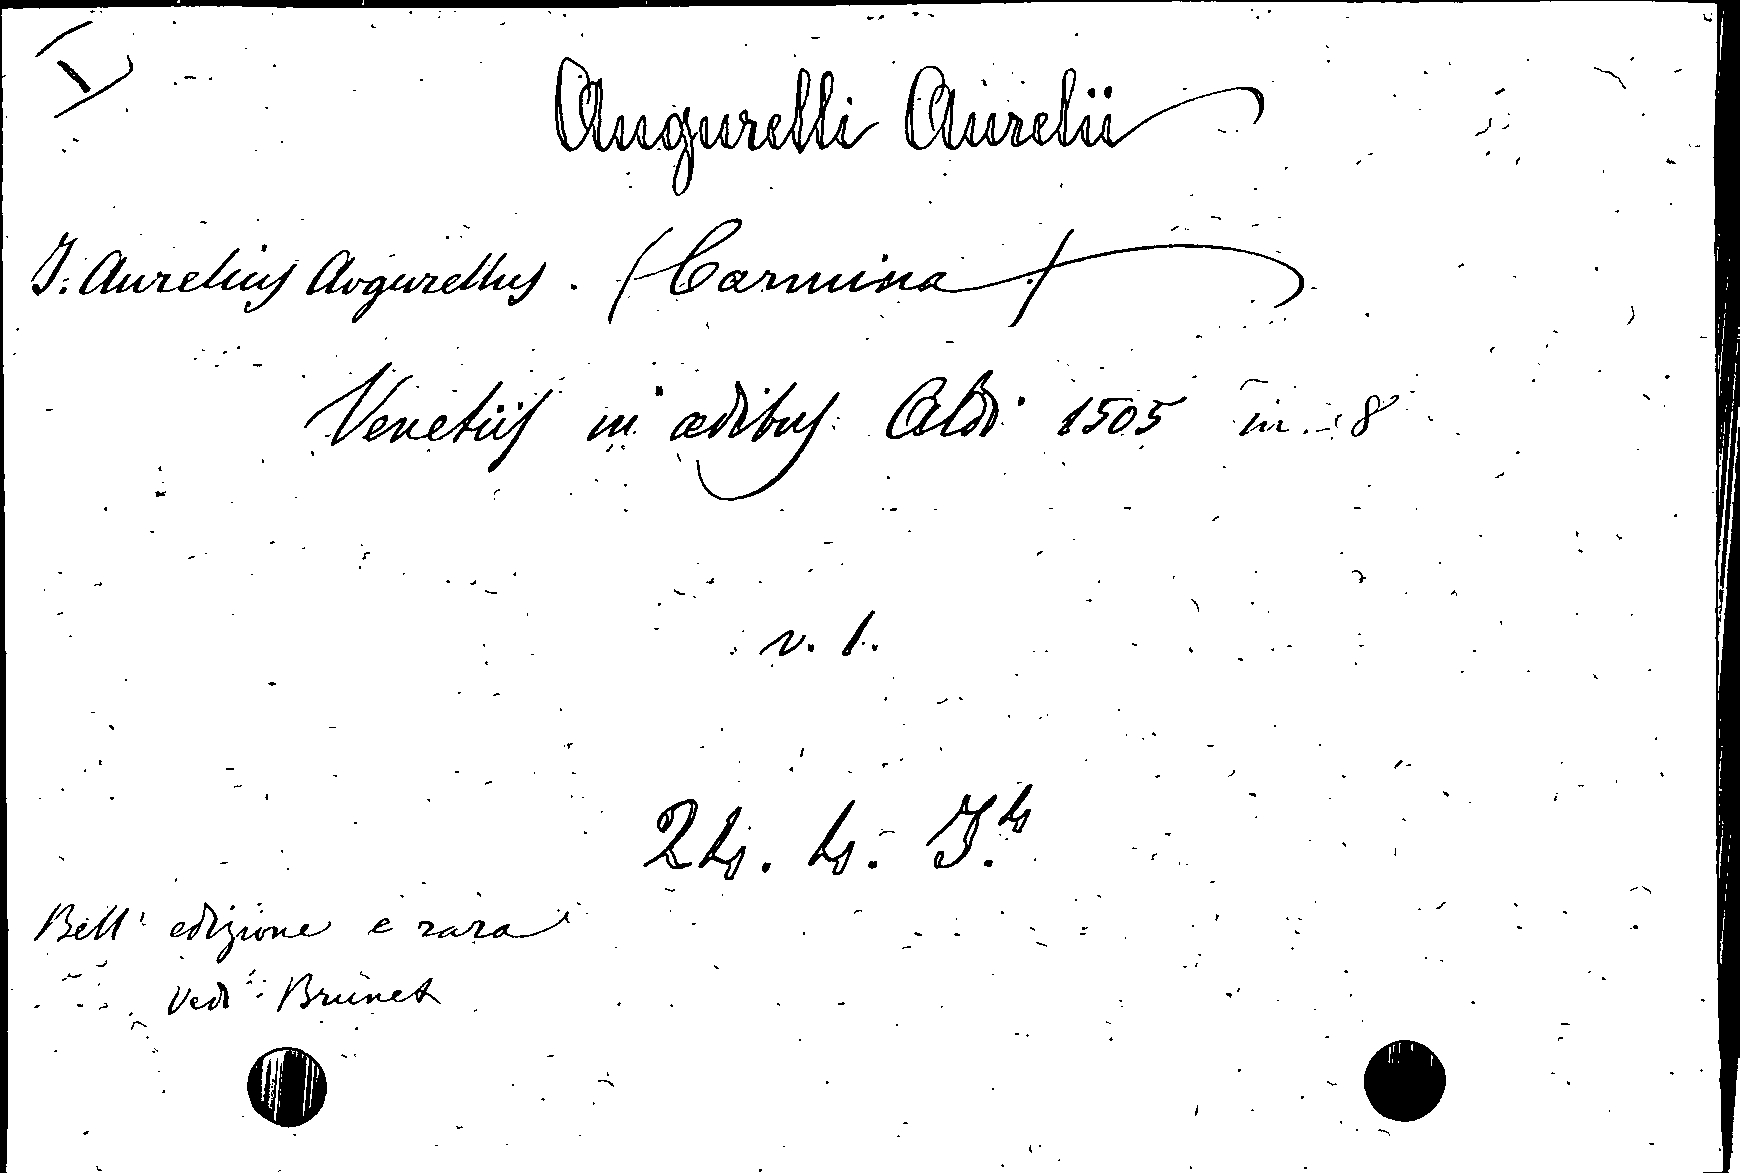 I
Augurelli Aurelii
I. Aurelius Augurellus. (Carmina)
Venetiis in ædibus Aldi 1505 in 8
v. 1.
Bell' edizione e rara
Vedi Brunet